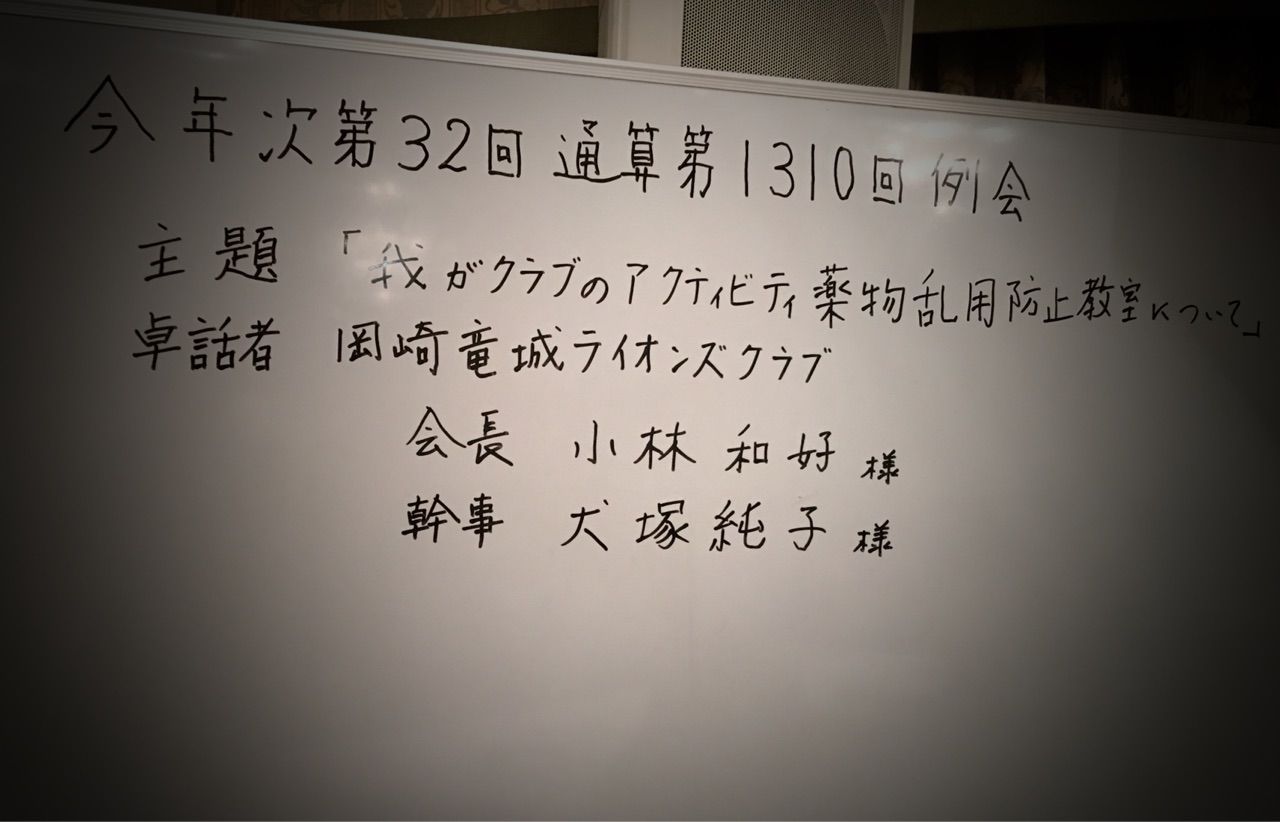 今年次第32回 通算第1310回 例会
主題 「我がクラブのアクティビティ薬物乱用防止教室について」
卓話者 岡崎竜城ライオンズクラブ
会長 小林和好 様
幹事 犬塚純子 様